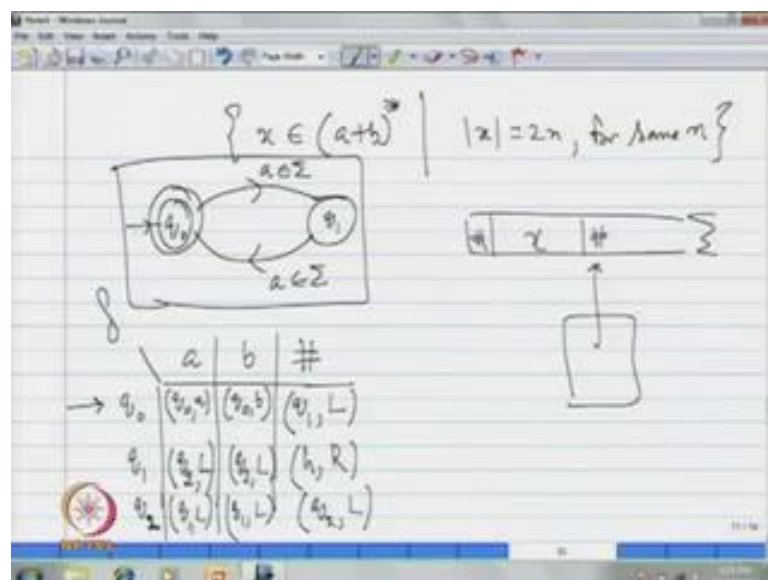 { x ∈ (a+b)* | |x| = 2n, for some n }
a ∈ Σ
q₀ q₁
a ∈ Σ
# x #
δ
a b #
→ q₀ (q₀, a) (q₀, b) (q₁, L)
q₁ (q₂, L) (q₂, L) (h, R)
q₂ (q₁, L) (q₁, L) (q₂, L)